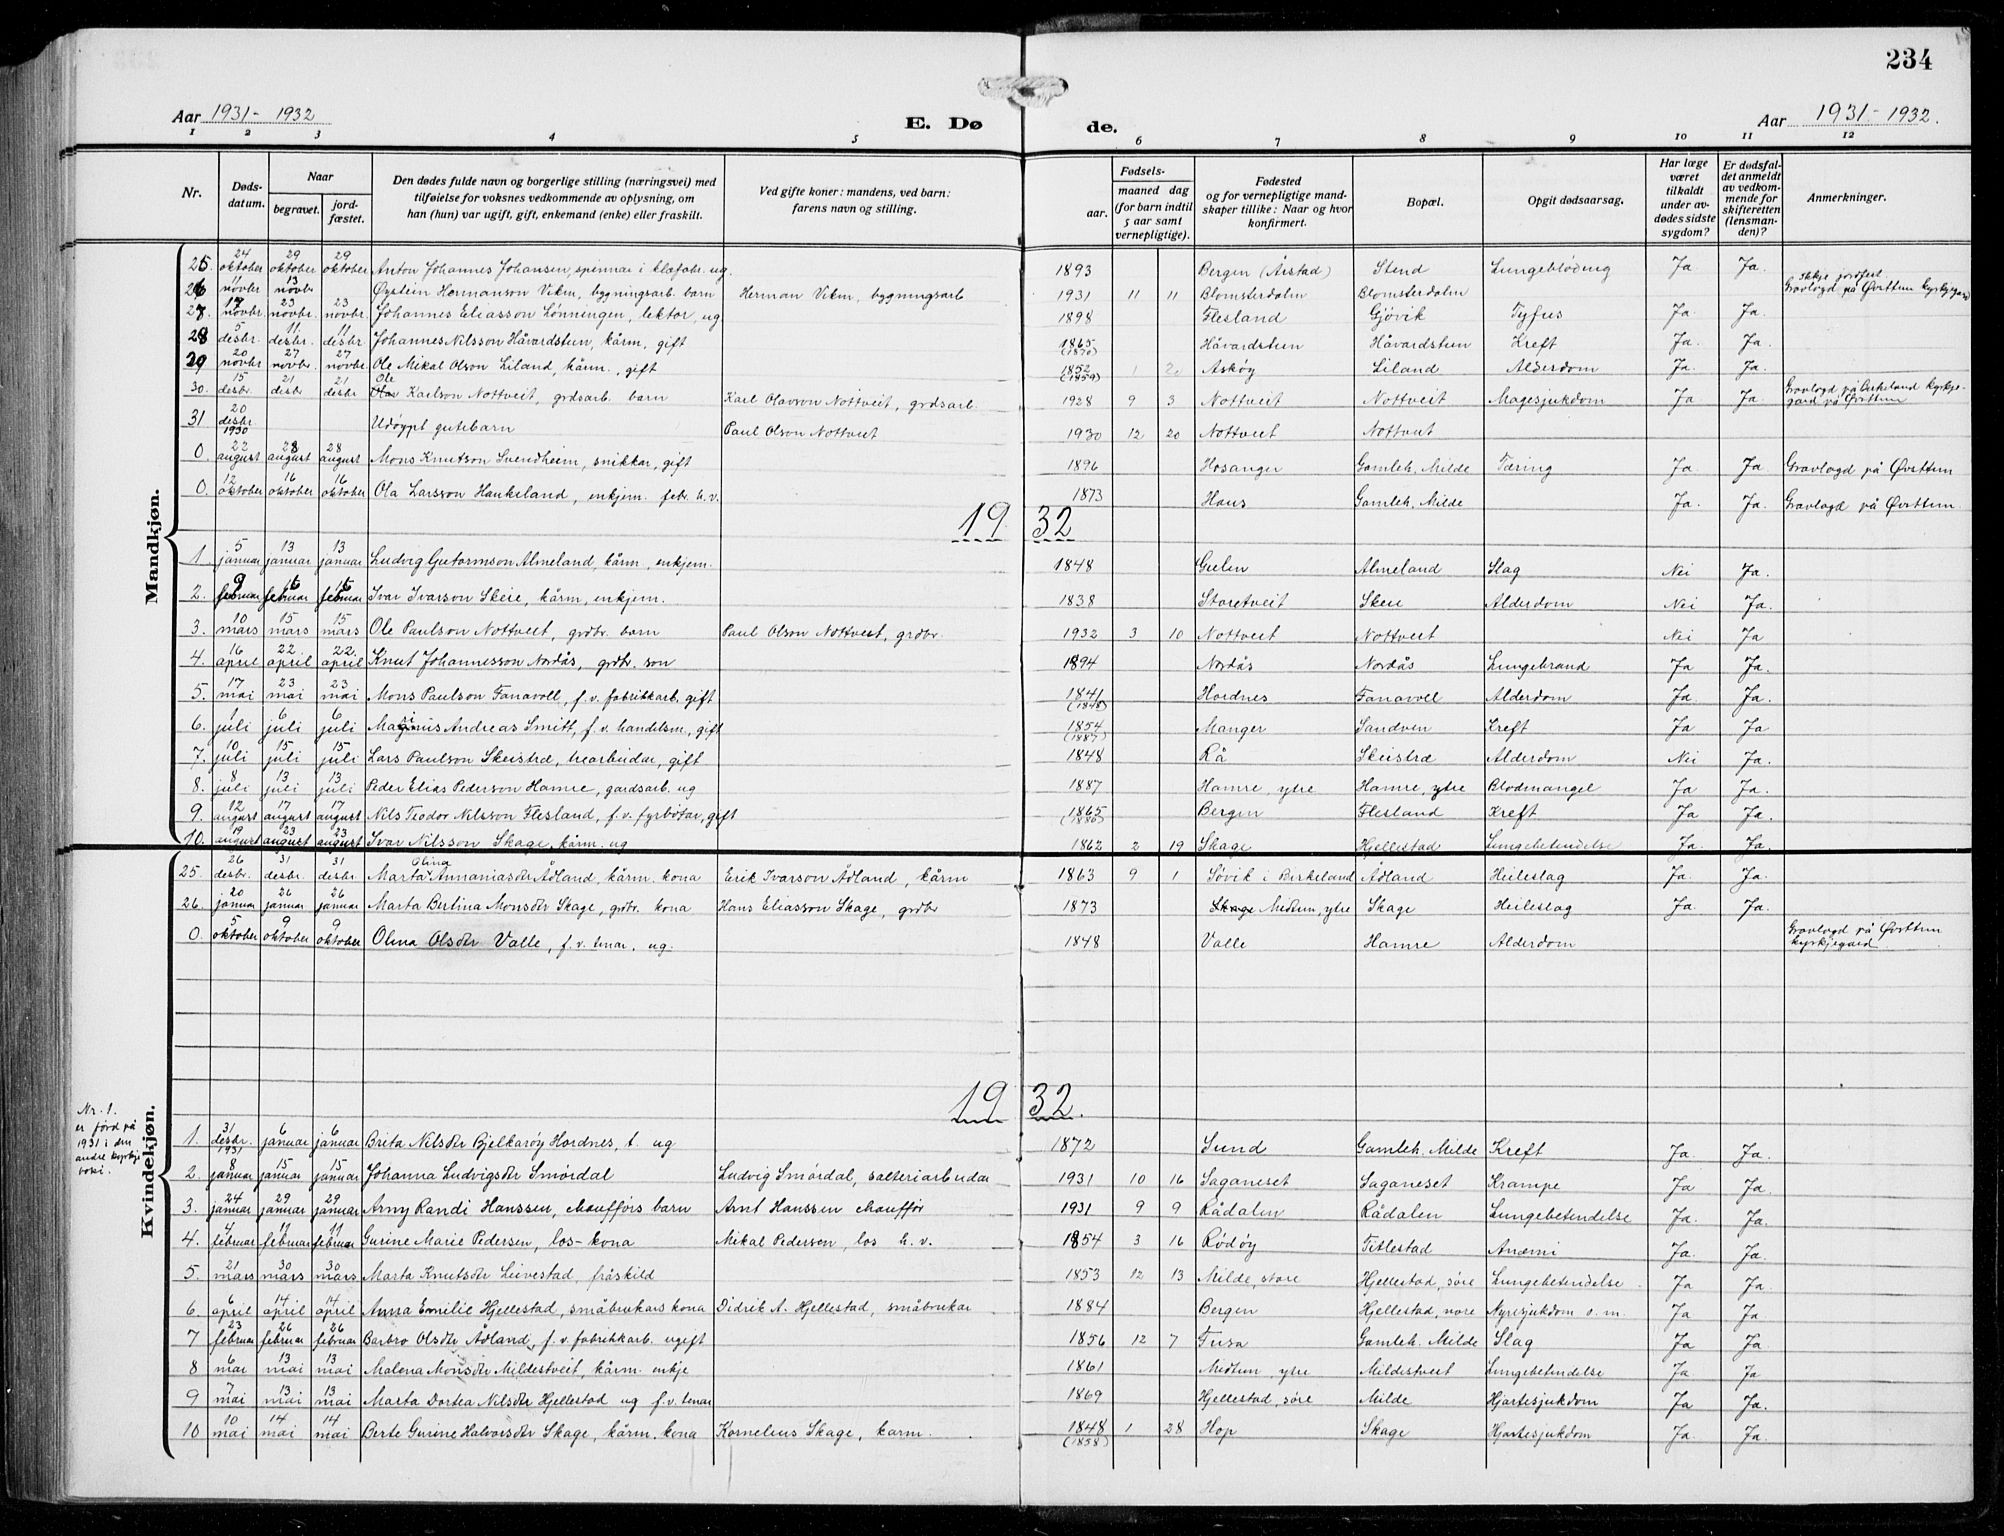 234
Aar 1931 - 1932 E. Dø de. Aar 1931 - 1932.
1 2 3 4 5 6 7 8 9 10 11 12
Nr. Døds-datum. Naar begravet. jord-fæstet. Den dødes fulde navn og borgerlige stilling (næringsvei) med tilføielse for voksnes vedkommende av oplysning, om han (hun) var ugift, gift, enkemand (enke) eller fraskilt. Ved gifte koner: mandens, ved barn: farens navn og stilling. Fødsels- aar. maaned dag (for barn indtil 5 aar samt vernepligtige). Fødested og for vernepligtige mandskaper tillike: Naar og hvor konfirmert. Bopæl. Opgit dødsaarsag. Har læge været tilkaldt under avdødes sidste sygdom? Er dødsfaldet anmeldt av vedkommende for skifteretten (lensmanden)? Anmerkninger.
Mandkjøn.
25. 24 oktober 29 oktober 29 oktober Anton Johannes Johansen, spinnar i klæfabr. ug. 1893 Bergen (Årstad) Stend Lungebløding Ja Ja.
26 11 novbr 13 novbr Øystein Hermanson Vikm, bygningsarb. barn Herman Vikm, bygningsarb 1931 11 11 Blomsterdalm Blomsterdalm Ikkje jordfest. Gravlagd på Øvsttun kyrkjegard
27. 17 novbr. 23 novbr. 23 novbr. Johannes Eliasson Lønningen, lektor, ug. 1898 Flesland Gjøvik Tyfus Ja. Ja.
28 5 desbr. 11 desbr. 11 desbr Johannes Nilsson Håvardstun, kårm, gift 1865 (1870) Håvardstun Håvardstun Kreft Ja. Ja.
29 20 novbr 27 novbr. 27 novbr. Ole Mikal Olson Liland, kårm., gift 1852 (1859) 1 20 Askøy Liland Alderdom Ja. Ja.
30. 15 desbr 21 desbr 21 desbr Ole Karlson Nottveit, grdsarb. barn Karl Olavson Nottveit, grdsarb. 1928 9 3 Nottveit Nottveit Magesjukdom Ja Ja. Gravlogd på Birkeland kyrkjegard på Øvsttun
31 20 desbr. 1930 Udøypt gutebarn Paul Olson Nottveit 1930 12 20 Nottveit Nottveit
0. 22 august 28 august 28 august Mons Knutson Svendheim, snikkar, gift 1896 Hosanger Gamleh. Milde Tæring Ja Ja. Gravlogd på Øvsttun
0. 12 oktober 16 oktober 16 oktober Ola Larsson Haukeland, enkjem. febr. h.v. 1873 Haus Gamleh. Milde Ja. Ja. Gravlagd på Øvsttun.
19 32
1. 5 januar 13 januar 13 januar Ludvig Gutormson Almeland, kårm, enkjem. 1848 Gulen Almeland Slag Nei Ja.
2. 9 februar 15 februar 15 februar Ivar Ivarson Skeie, kårm, enkjem. 1838 Storetveit Skeie Alderdom Nei Ja.
3. 10 mars 15 mars 15 mars Ole Paulson Nottveit, grdbr. barn Paul Olson Nottveit, grdbr. 1932 3 10 Nottveit Nottveit Nei Ja
4. 16 april 22 april 22. april Knut Johannesson Nordås, grdbr. son 1894 Nordås Nordås Lungebrand Ja Ja.
5. 17 mai 23 mai 23 mai Mons Paulson Fanavoll, f.v. fabrikkarb, gift 1841 (1848) Hordnes Fanavoll Alderdom Ja. Ja.
6. 1 juli 6 juli 6 juli Magnus Andreas Smitt, f.v. handelsm., gift 1854 (1887) Manger Sandven Kreft Ja Ja
7. 10 juli 15 juli 15 juli Lars Paulson Skeistræ, trearbeidar, gift 1848 Rå Skeistræ Alderdom Nei Ja.
8. 8 juli 13 juli 13 juli Peder Elias Pederson Hamre, gardsarb. ug 1887 Hamre, ytre Hamre, ytre Blodmangel Ja Ja.
9. 12 august 17 august 17 august Nils Teodor Nilsson Flesland, f.v. fyrbøtar, gift 1865 (1886) Bergen Flesland Kreft Ja Ja.
10. 19 august 23 august 23 august Ivar Nilsson Skage, kårm. ug 1862 2 19 Skage Hjellestad Lungebetendelse Ja. Ja.
Kvindekjøn.
25. 26 desbr. 31 desbr. 31 desbr Marta Olina Annaniasdtr Ådland, kårm. kona Erik Ivarson Ådland, kårm 1863 9 1 Søvik i Birkeland Ådland Heileslag Ja. Ja.
26. 20 januar 26 januar 26 januar Marta Berlina Monsdtr Skage, grdbr. kona Hans Eliasson Skage, grdbr 1873 Skage Midtun, ytre Skage Heileslag Ja. Ja.
0. 5 oktober 9 oktober 9 oktober Olina Olsdtr Valle, f.v. tenar, ug. 1848 Valle Hamre Alderdom Gravlagd på Øvsttun kyrkjegard
19 32.
Nr. 1. er førd på 1931 i den andre kyrkjeboki.
1. 31 desbr. 1931 6 januar 6 januar Brita Nilsdtr Bjelkarøy Hordnes, t. ug 1872 Sund Gamleh. Milde Kreft Ja. Ja.
2. 8 januar 15 januar 15 januar Johanna Ludvigsdtr Smørdal Ludvig Smørdal, salteriarbeidar 1931 10 16 Saganeset Saganeset Krampe Ja Ja.
3. 24 januar 29 januar 29 januar Arny Randi Hanssen, chaufførs barn Arnt Hanssen chauffør 1931 9 9 Rådalen Rådalen Lungebetendelse Ja. Ja.
4. 4 februar 11 februar 11 februar Gurine Marie Pedersen, los-kona Mikal Pedersen, los h.v. 1854 3 16 Rødøy Titlestad Anæmi Ja. Ja.
5. 21 mars 30 mars 30 mars Marta Knutsdtr Leivestad, fråskild 1853 12 13 Milde, store Hjellestad, søre Lungebetendelse Ja Ja.
6. 6 april 14 april 14 april Anna Emilie Hjellestad, småbrukars kona Didrik A. Hjellestad, småbrukar 1884 Bergen Hjellestad, nore Nyresjukdom o.m. Ja Ja.
7 23 februar 26 februar 26 februar Barbro Olsdtr Ådland, f.v. fabrikkarb. ugift 1856 12 7 Fusa Gamleh. Milde Slag Ja Ja.
8 6 mai 13 mai 13 mai Malena Monsdtr Mildestveit, kårm. enkje 1861 Midtun, ytre Mildestveit Lungebetendelse Ja Ja
9 7 mai 13 mai 13 mai Marta Dortea Nilsdtr Hjellestad ug f.v. tenar 1869 Hjellestad, søre Milde Hjartesjukdom Ja Ja.
10 10 mai 14 mai 14 mai Berte Gurine Halvorsdtr Skage, kårm. kona Kornelius Skage, kårm. 1848 (1858) 1 28 Hop Skage Hjartesjukdom Ja. Ja.